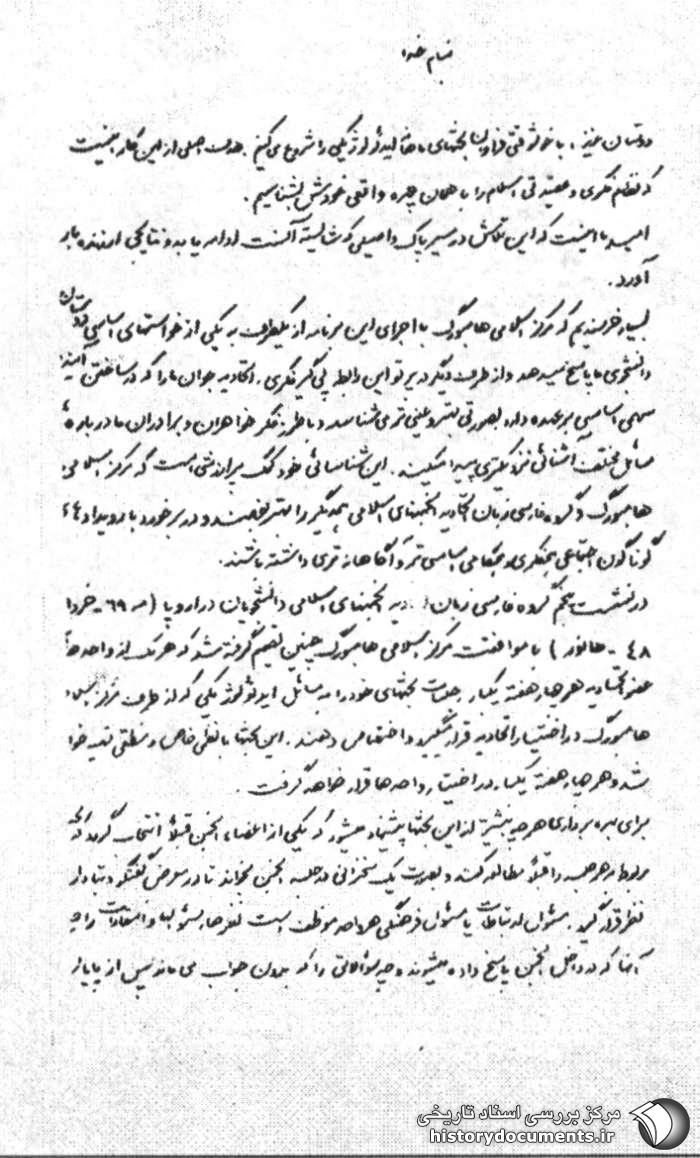 بنام خدا
دوستان عزیز، با خوشوقتی فراوان بحثهای ماهنامه ایدئولوژیکی را شروع می‌کنیم. هدف اصلی از این کار اینست
که نظام فکری و عقیدتی اسلام را با همان چهره واقعی خودش بشناسیم.
امید ما اینست که این تلاش در مسیر پاک و اصیلی که شایسته آنست ادامه یابد و نتایجی ارزنده ببار
آورد.
بسیار خرسندیم که مرکز اسلامی هامبورگ با اجرای این برنامه از یکطرف به یکی از خواستهای اساسی دوستان
دانشجوی ما پاسخ میدهد و از طرف دیگر در پرتو این رابطه پی‌گیر فکری، اتحادیه جوان ما را که در ساختن آینده
سهمی اساسی بر عهده دارد بصورتی بهتر و عینی‌تر می‌شناسد و با طرز فکر خواهران و برادران ما درباره
مسائل مختلف آشنائی نزدیکتری پیدا میکند. این شناسائی خود کمک پرارزشی است که مرکز اسلامی
هامبورگ و گروه فارسی زبان اتحادیه انجمنهای اسلامی همدیگر را بهتر بفهمند و در برخورد با رویدادهای
گوناگون اجتماعی همفکری و همگامی اساسی‌تر و آگاهانه‌تری داشته باشند.
در نشست پنجم گروه فارسی زبان اتحادیه انجمنهای اسلامی دانشجویان در اروپا (مه ٦٩ - خرداد
٤٨ - هانور) با موافقت مرکز اسلامی هامبورگ چنین تصمیم گرفته شد که هر یک از واحدهای
عضو اتحادیه هر چهار هفته یکبار جلسات بحثهای خود را به مسائل ایدئولوژیکی که از طرف مرکز اسلامی
هامبورگ در اختیار اتحادیه قرار میگیرد اختصاص دهند. این بحثها با نظمی خاص و منطقی تهیه خواهد
شد و هر چهار هفته یکبار در اختیار واحدها قرار خواهد گرفت.
برای بهره برداری هر چه بیشتر از این بحثها پیشنهاد میشود که یکی از اعضاء انجمن قبلاً انتخاب گردد که بحث
مربوط به هر جلسه را قبلاً مطالعه کند و بصورت یک سخنرانی در جلسه انجمن بخواند تا در معرض گفتگو و تبادل
نظر قرار گیرد. مسئول ارتباطات یا مسئول فرهنگی هر واحد موظف است نظرها، سئوالها و انتقادات را چه
آنها که در داخل انجمن پاسخ داده میشوند و چه سئوالاتی را که بدون جواب می‌مانند پس از پایان
مرکز بررسی اسناد تاریخی
historydocuments.ir